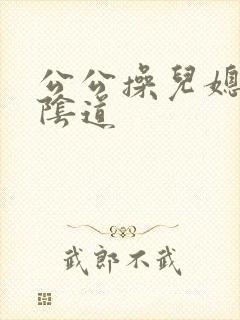 公公操兒媳
陰道
武郎不武